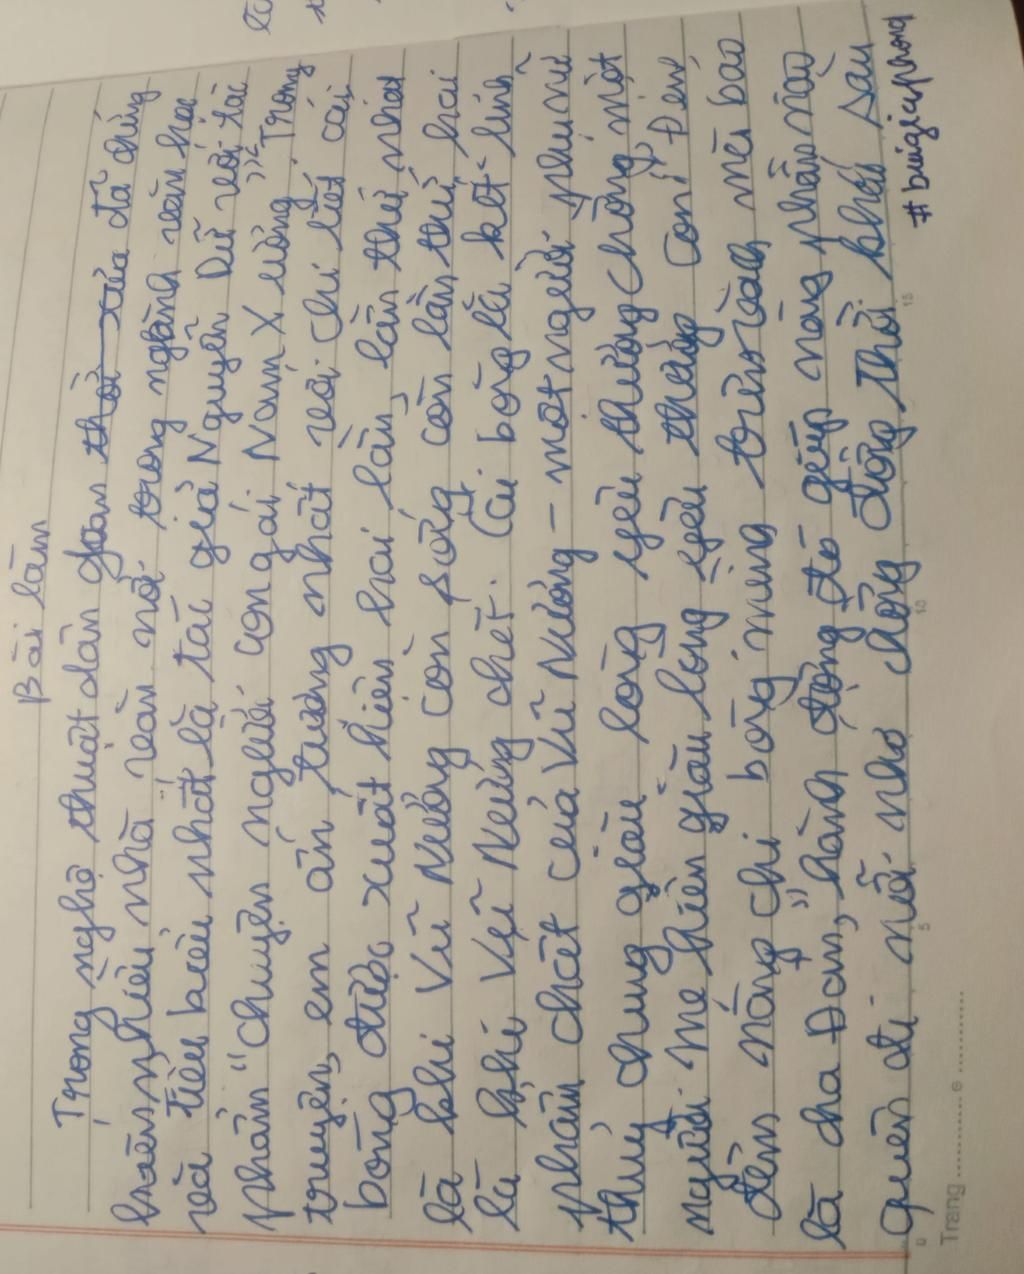 Bài làm
Trong nghệ thuật dân gian thời xưa đã chứng
kiến nhiều nhà văn nổi trong ngành văn học
và tiêu biểu nhất là tác giả Nguyễn Dữ với tác
phẩm "chuyện người con gái Nam Xương". Trong
truyện, em ấn tượng nhất với chi tiết cái
bóng được xuất hiện hai lần, lần thứ nhất
là khi Vũ Nương còn sống còn lần thứ hai
là khi Vũ Nương chết. Cái bóng là kết tinh
phẩm chất của Vũ Nương - một người phụ nữ
thủy chung giàu lòng yêu thương chồng, một
người mẹ hiền giàu lòng yêu thương con. "Đêm
đêm nàng chỉ bóng mình trên vách mà bảo
là cha Đản", hành động đó giúp nàng phần nào
quên đi nỗi nhớ chồng đồng thời khỏi sầu
#buigiaphong
Trang
5
10
15